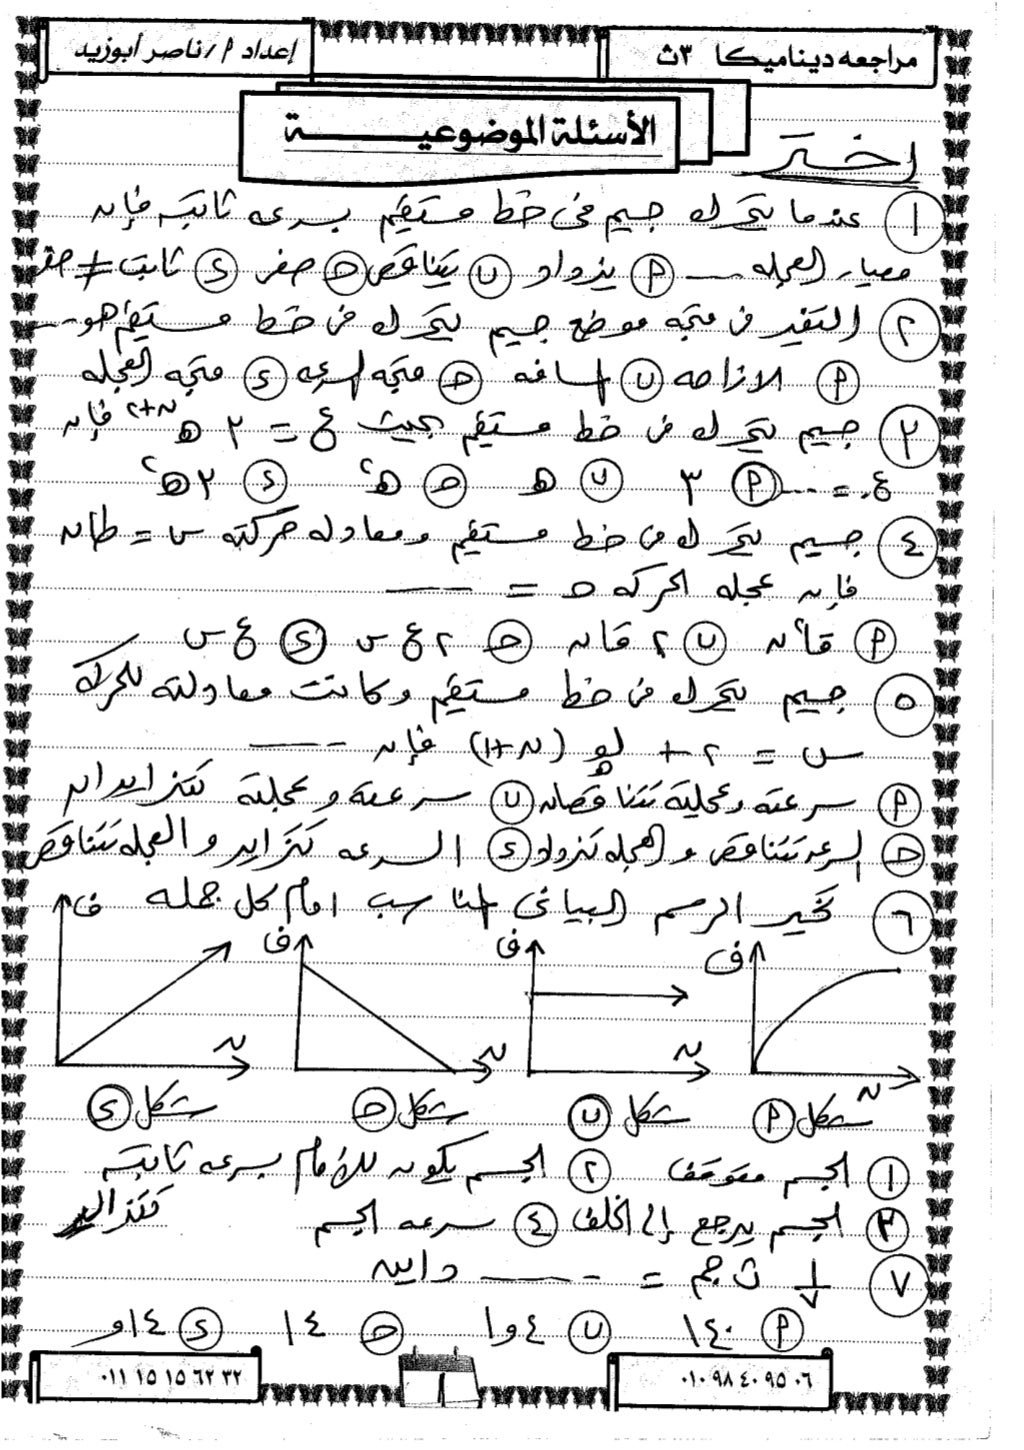 مراجعه ديناميكا ٣ث
إعداد م/ ناصر أبوزيد
الأسئلة الموضوعية
اختر
١ عندما يتحرك جسم فى خط مستقيم بسرعه ثابته فإن
معيار العجله --- م يزداد ب يتناقص حـ صفر ء ثابت ≠ صفر
٢ التغير فى متجه موضع جسم يتحرك فى خط مستقيم هو ---
م الازاحه ب المسافه حـ متجه السرعه ء متجه العجله
٣ جسم يتحرك فى خط مستقيم بحيث ع = ٢ هـ ^ن+٢ فإن
ع. = --- م ٣ ب هـ حـ هـ^٢ ء ٢هـ^٢
٤ جسم يتحرك فى خط مستقيم ومعادله حركته س = طا ن
فإن عجله الحركه حـ = ---
م قا^٢ن ب ٢ قا ن حـ ٢ ع س ء ع س
٥ جسم يتحرك فى خط مستقيم وكانت معادلته للحركه
س = ٢ + لو هـ (ن+١) فإن ---
م سرعته وعجلته تتناقصان ب سرعته وعجلته تتزايدان
حـ السرعه تتناقص والعجله تزداد ء السرعه تتزايد والعجله تتناقص
٦ تخير الرسم البيانى المناسب امام كل جمله
ف ف ف ف
ن ن ن ن
شكل م شكل ب شكل حـ شكل ء
١ الجسم متوقف ٢ الجسم يكون للأمام بسرعه ثابته
٣ الجسم يرجع إلى الخلف ٤ سرعه الجسم تتزايد
٧ ١/٧ ث جم = --- داين
م ١٤٠ ب ١٫٤ حـ ١٤ ء ٫١٤
٠١٠ ٩٨ ٤٠ ٩٥ ٠٦
١
٠١١ ١٥ ١٥ ٦٢ ٣٢